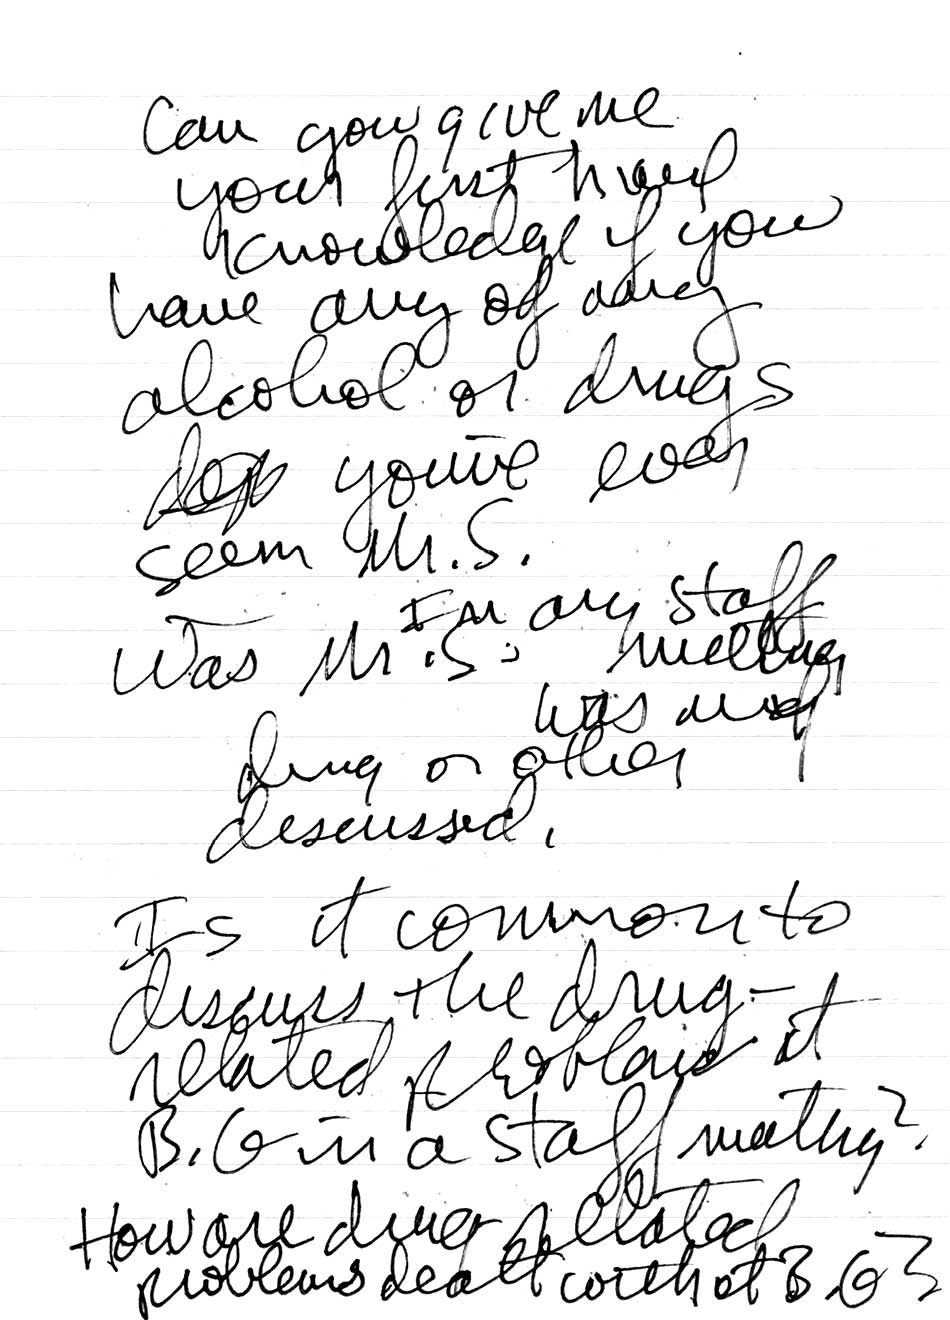 Can you give me
your first hand
knowledge if you
have any of any
alcohol or drugs
you've ever
seem Mr. S.
In any staff
Was Mr. S. meeting
was
drug or other
discussed.
Is it common to
discuss the drug-
related problems at
B.G in a staff meeting?
How are drug related
problems dealt with at B.G?